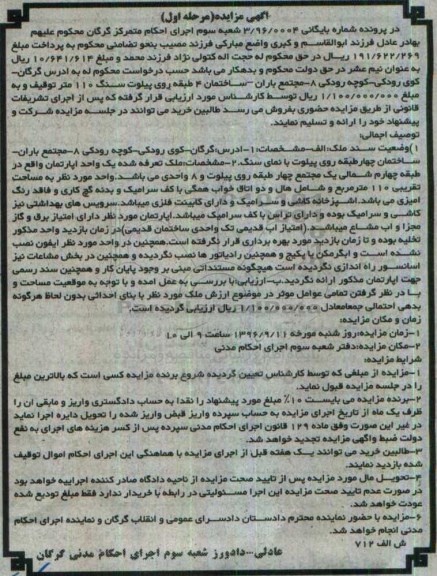 آگهی مزایده(مرحله اول)
در پرونده شماره بایگانی 3/96/0004 شعبه سوم اجرای احکام متمرکز گرگان محکوم علیهم
بهادر عادل فرزند ابوالقاسم و کبری واضع مبارکی فرزند مصیب بنحو تضامنی محکوم به پرداخت مبلغ
191/622/269 ریال در حق محکوم له حجت اله کتولی نژاد فرزند محمد و مبلغ 10/641/613 ریال
به عنوان نیم عشر در حق دولت محکوم و بدهکار می باشد حسب درخواست محکوم له به ادرس گرگان-
کوی رودکی-کوچه رودکی 8-مجتمع باران -ساختمان 4 طبقه روی پیلوت سنگ 110 متر توقیف و به
مبلغ 1/100/000/000 ریال توسط کارشناس مورد ارزیابی قرار گرفته که پس از اجرای تشریفات
قانونی از طریق مزایده حضوری بفروش می رسد طالبین خرید می توانند در جلسه مزایده شرکت و
پیشنهاد خود را ارائه و تسلیم نمایند.
توصیف اجمالی:
1)وضعیت سند ملک:الف-مشخصات:1-ادرس:گرگان-کوی رودکی-کوچه رودکی 8-مجتمع باران-
ساختمان چهارطبقه روی پیلوت با نمای سنگ.2-مشخصات:ملک تعرفه شده یک واحد اپارتمان واقع در
طبقه چهارم شمالی یک مجتمع چهار طبقه روی پیلوت و 8 واحدی می باشد.واحد مورد نظر به مساحت
تقریبی 110 مترمربع و شامل هال و دو اتاق خواب همگی با کف سرامیک و بدنه گچ کاری و فاقد رنگ
امیزی می باشد.اشپزخانه کاشی و سرامیک و دارای کابینت فلزی میباشد.سرویس های بهداشتی نیز
کاشی و سرامیک بوده و دارای تراس با کف سرامیک میباشد.اپارتمان مورد نظر دارای امتیاز برق و گاز
مجزا و اب مشاع میباشد.(امتیاز اب قدیمی تک واحدی ساختمان قدیمی)در زمان بازدید واحد مذکور
تخلیه بوده و تا زمان بازدید مورد بهره برداری قرار نگرفته است.همچنین در واحد مورد نظر ایفون نصب
نشده است و ابگرمکن یا پکیج و همچنین رادیاتور ها نصب نگردیده و همچنین در بخش مشاعات نیز
اسانسور راه اندازی نگردیده است هیچگونه مستنداتی مبنی بر وجود پایان کار و همچنین سند رسمی
جهت اپارتمان مذکور ارائه نگردید.ب-ارزیابی:با بررسی به عمل امده و با توجه به موقعیت مساحت و
با در نظر گرفتن تمامی عوامل موثر در موضوع ارزش ملک مورد نظر با بنای احداثی بدون لحاظ هرگونه
بدهی احتمالی جمعامعادل 1/100/000/000 ریال ارزیابی گردیده است.
زمان و مکان مزایده:
1-زمان مزایده:روز شنبه مورخه 1396/9/11 ساعت 9 الی 10
2-مکان مزایده:دفتر شعبه سوم اجرای احکام مدنی
شرایط مزایده:
1-مزایده از مبلغی که توسط کارشناس تعیین گردیده شروع برنده مزایده کسی است که بالاترین مبلغ
را در جلسه مزایده قبول نماید.
2-برنده مزایده می بایست 10% مبلغ مورد پیشنهاد را نقدا به حساب دادگستری واریز و مابقی ان را
ظرف یک ماه از تاریخ اجرای مزایده به حساب سپرده واریز قبض واریز شده را تحویل دایره اجرا نماید
در غیر این صورت وفق ماده 129 قانون اجرای احکام مدنی سپرده پس از کسر هزینه های اجرای به نفع
دولت ضبط واگهی مزایده تجدید خواهد شد.
3-طالبین خرید می توانند یک هفته قبل از اجرای مزایده با هماهنگی این اجرای احکام اموال توقیف
شده بازدید نمایند.
4-تحویل مال مورد مزایده پس از تایید صحت مزایده از ناحیه دادگاه صادر کننده اجراییه خواهد بود
در صورت عدم تایید صحت مزایده این اجرا مسئولیتی در رابطه با خریدار ندارد فقط مبلغ تودیع شده
عودت خواهد شد.
6-مزایده با حضور نماینده محترم دادستان دادسرای عمومی و انقلاب گرگان و نماینده اجرای احکام
مدنی انجام خواهد شد.
ش الف 712
عادلی...دادورز شعبه سوم اجرای احکام مدنی گرگان